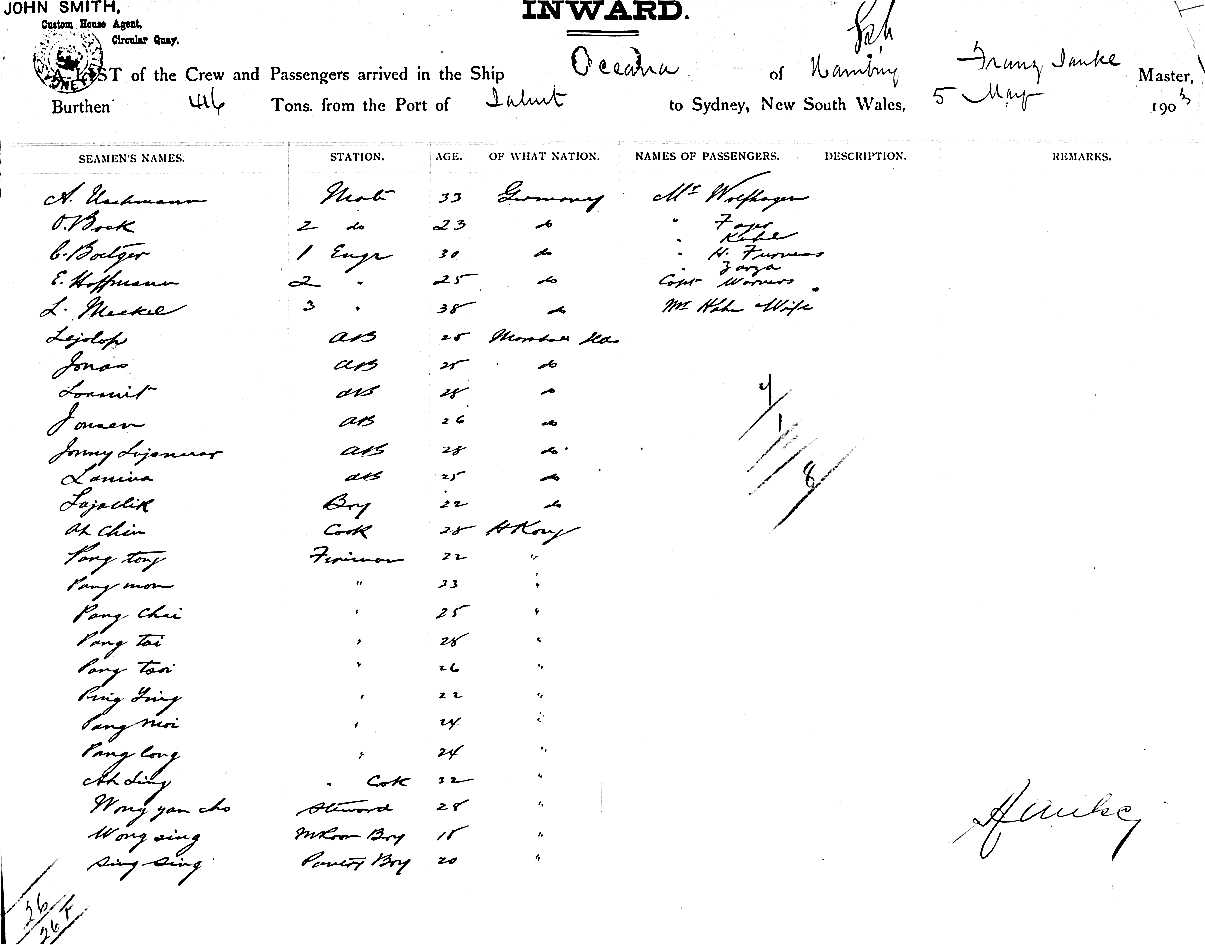 JOHN SMITH,
Custom House Agent,
Circular Quay.
INWARD.
A LIST of the Crew and Passengers arrived in the Ship Oceana of Hamburg Franz Janke Master,
Burthen 416 Tons. from the Port of Jaluit to Sydney, New South Wales, 5 May 1903
SEAMEN'S NAMES. STATION. AGE. OF WHAT NATION. NAMES OF PASSENGERS. DESCRIPTION. REMARKS.
A. Mate 33 Germany Mr Wolfhagen
O. Bock 2 do 23 do "
C. Boetger 1 Engr 30 do " H. Furness
E. Hoffmann 2 " 25 do Capt Warners
L. Meckel 3 " 38 do Mr Hahn Wife
Lejolop AB 25 Marshall Ilds
Jonas AB 25 do
AB 28 do
Jonsen AB 26 do
Jonny AB 28 do
Laniva AB 25 do
Lajadlik Boy 22 do
Ah Chin Cook 28 H Kong
Pang tong Fireman 22 "
Pang mon " 23 "
Pang Chai " 25 "
Pang tai " 28 "
Pang tsoi " 26 "
Ping Ying " 22 "
Pang moi " 24 "
Pang long " 24 "
Ah Ling " Cook 32 "
Wong yan cho Steward 28 "
Wong sing M Room Boy 18 "
Sing Sing Pantry Boy 20 "
26
26